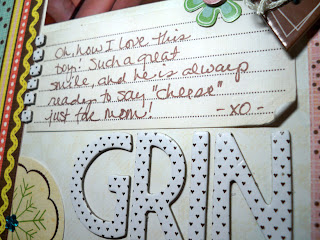 Oh, how I love this
boy! Such a great
smile, and he is always
ready to say "cheese"
just for mom!
- XO -
GRIN